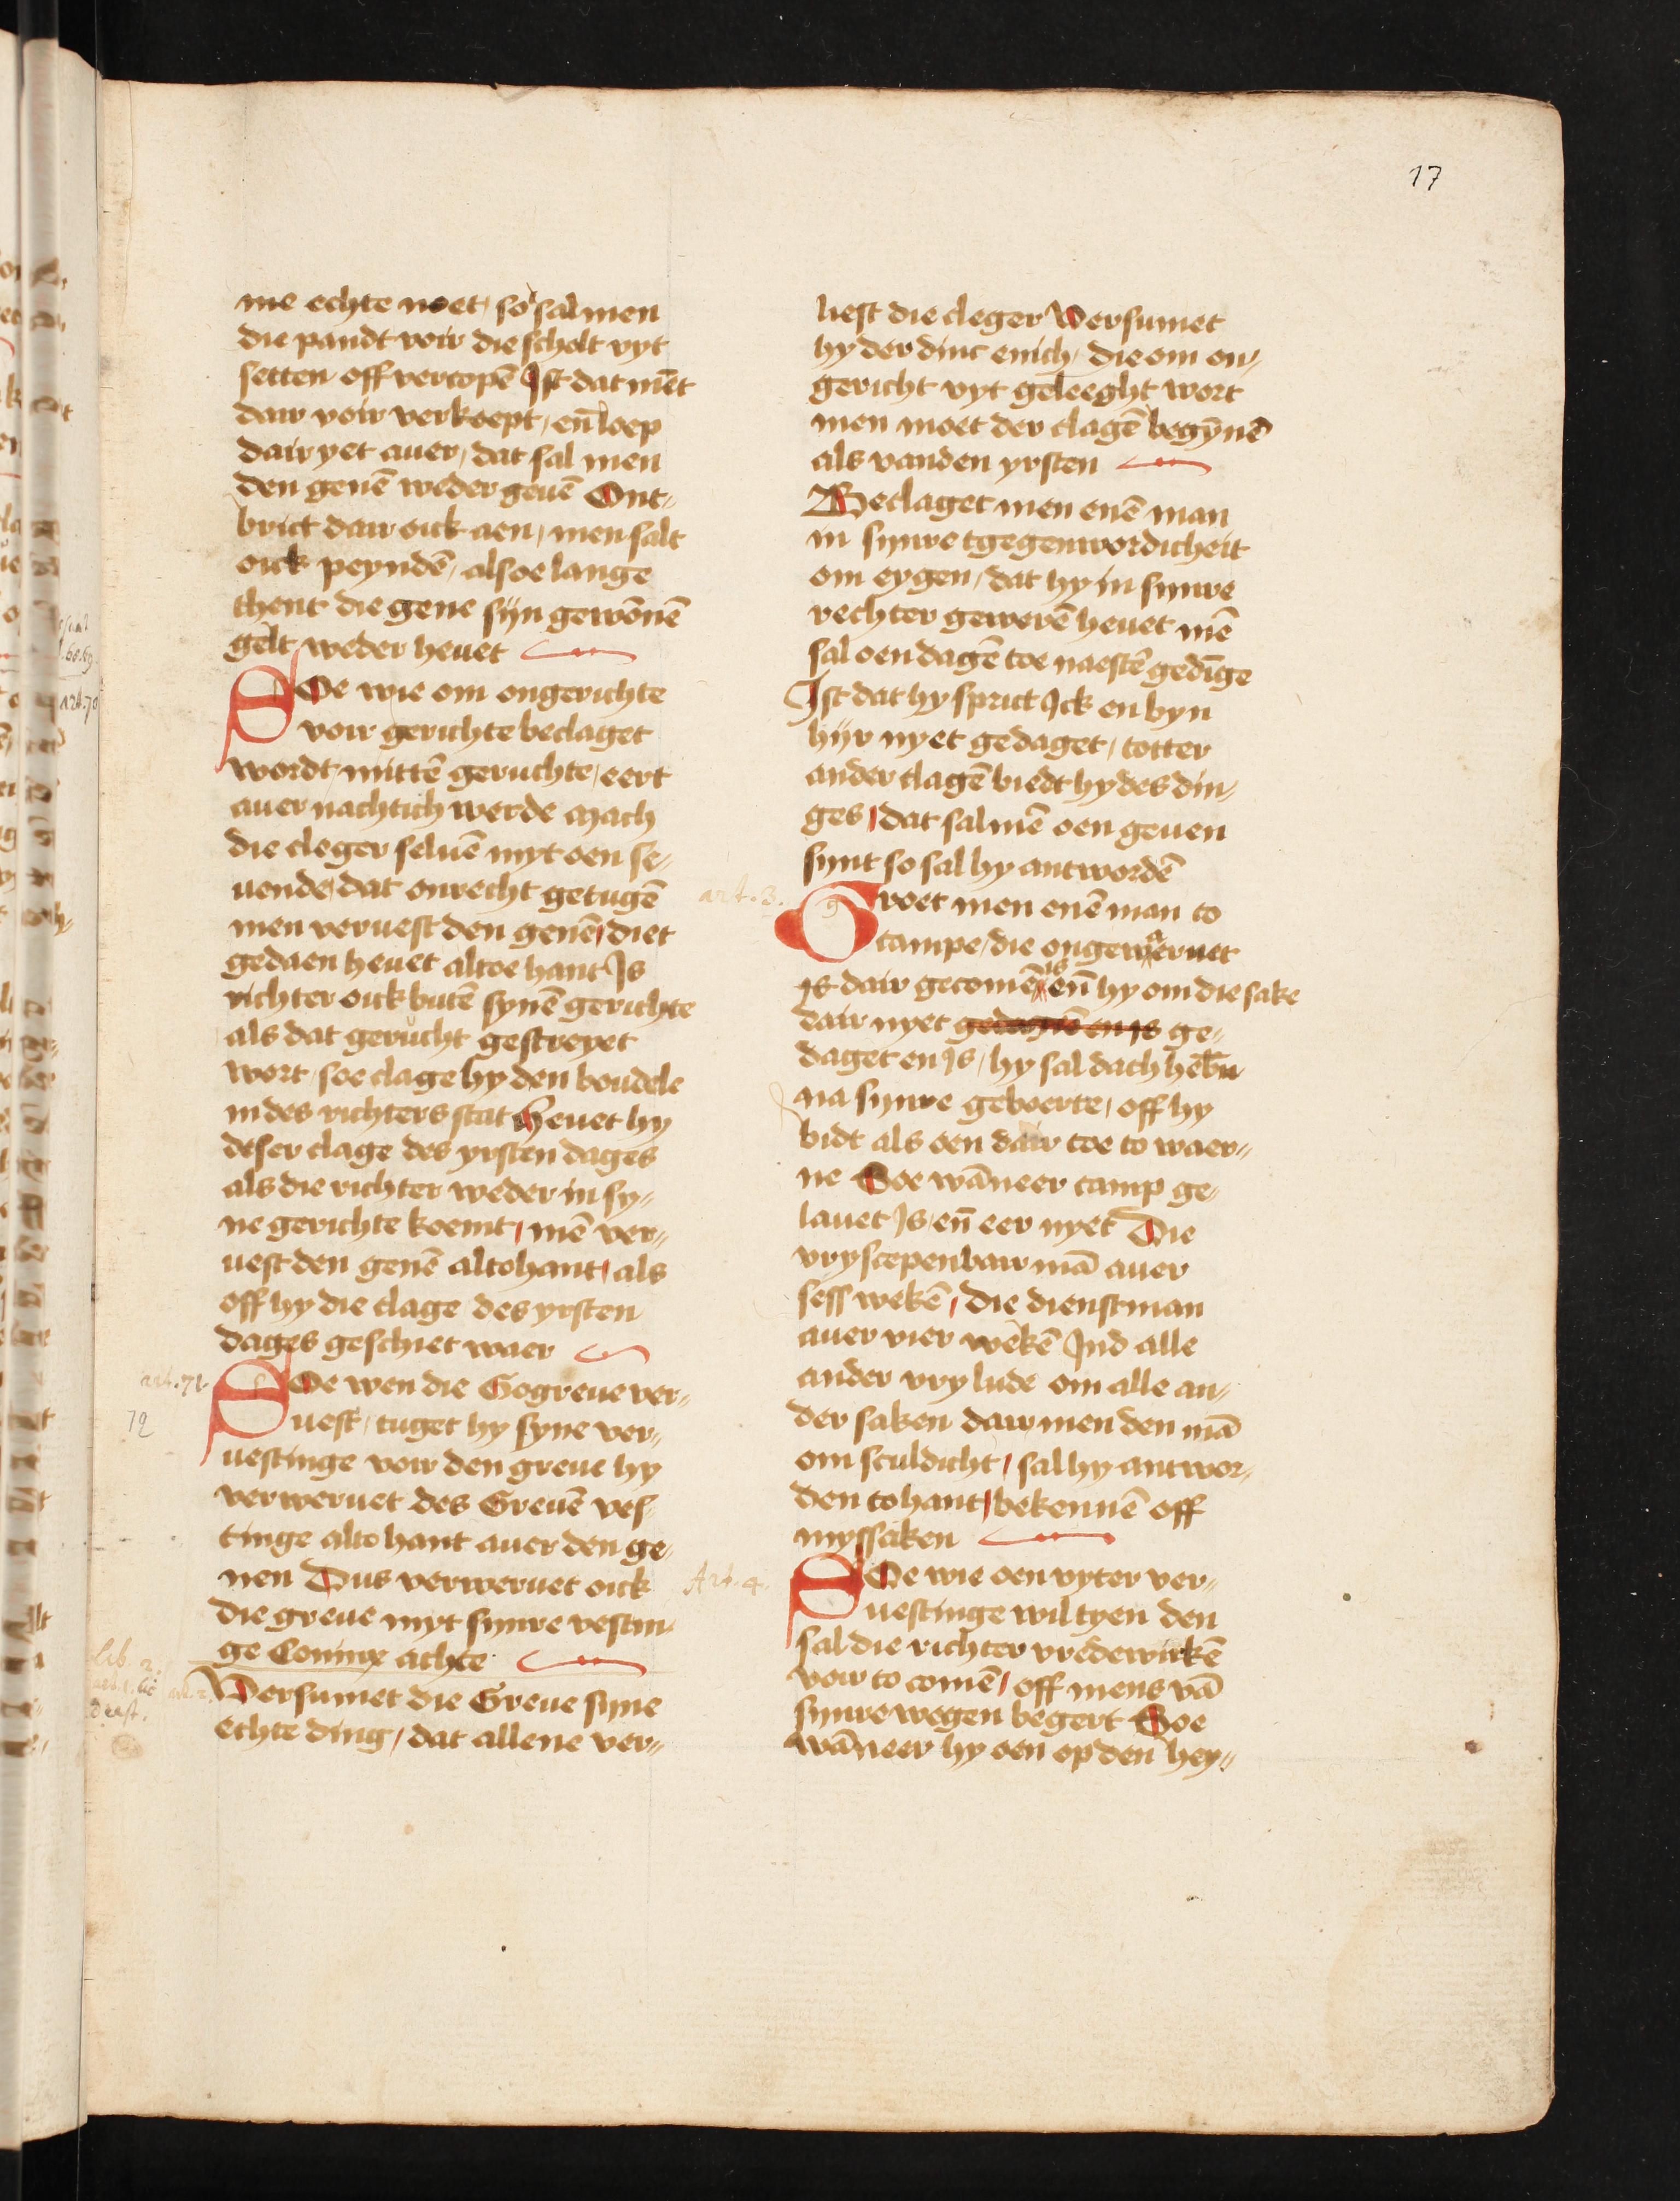 17
me echte noet, so salmen
die pandt voir die scholt vyt
setten off vercopē Ist dat mēt
dair voir verkoept, en̄ loep
dair yet auer, dat sal men
den genē weder geuē Ont-
brict dair oick aen, men salt
oick peyndē, alsoe lange
thent die gene sijn gewōnē
gelt weder heuet
SOe wie om ongerichte
voir gerichte beclaget
wordt mittē geruchte, eert
auer nachtich werde Mach
die cleger seluē myt oen se-
uende, dat onrecht getugē
men veruest den genē, diet
gedaen heuet altoe hant Is
richter oick butē synē gerichte
als dat gerucht gestreyet
wort, soe clage hy den boudele
in des richters stat Heuet hy
deser clage des yrsten dages
als die richter weder in sy-
ne gerichte koemt, mē ver-
uest den genē altohant, als
off hy die clage des yrsten
dages geschiet waer
art. 71.
72
SOe wen die Gogreue ver-
uest, tuget hy syne ver-
uestinge voir den greue hy
verweruet des Greuē ves-
tinge alto hant auer den ge-
nen Dus verweruet oick
die greue myt synre vestin-
ge Coninx achte
Lib. 2.
Versumet die Greue syne
echte ding, dat allene ver-
liest die cleger Versumet
hy der dinc enich, die om on-
gericht vyt geleeght wort
men moet der clagē begȳnē
als vanden yrsten
Beclaget men enē man
in synre tgegenwordicheit
om eygen, dat hy in synre
rechter gewerē heuet mē
sal oen dagē toe naestē gedīge
Ist dat hy sprict Ick en byn
hijr nyet gedaget, totter
ander clagē biedt hy des din-
ges, dat salmē oen geuen
synt so sal hy antwordē
art. 3.
Groet men enē man to
campe, die ongewaeruet
is dair gecomē is en̄ hy om die sake
dair nyet gedagēt en is ge-
daget en is, hy sal dach hebn̄
na synre geboerte, off hy
bidt als oen dair toe to waer-
ne Soe wāneer camp ge-
lauet is, en̄ eer nyet Die
vryscepenbair mā auer
sess wekē, die dienstman
auer vier wekē Ind alle
ander vry lude om alle an-
der saken dair men den mā
om sculdicht, sal hy antwor-
den tohant, bekennē off
myssaken
Art. 4.
SOe wie oen vyter ver-
uestinge wil tyen den
sal die richter vredewirkē
voir to comē, off mens vā
synre wegen begert Soe
wāneer hy oen op den hey-